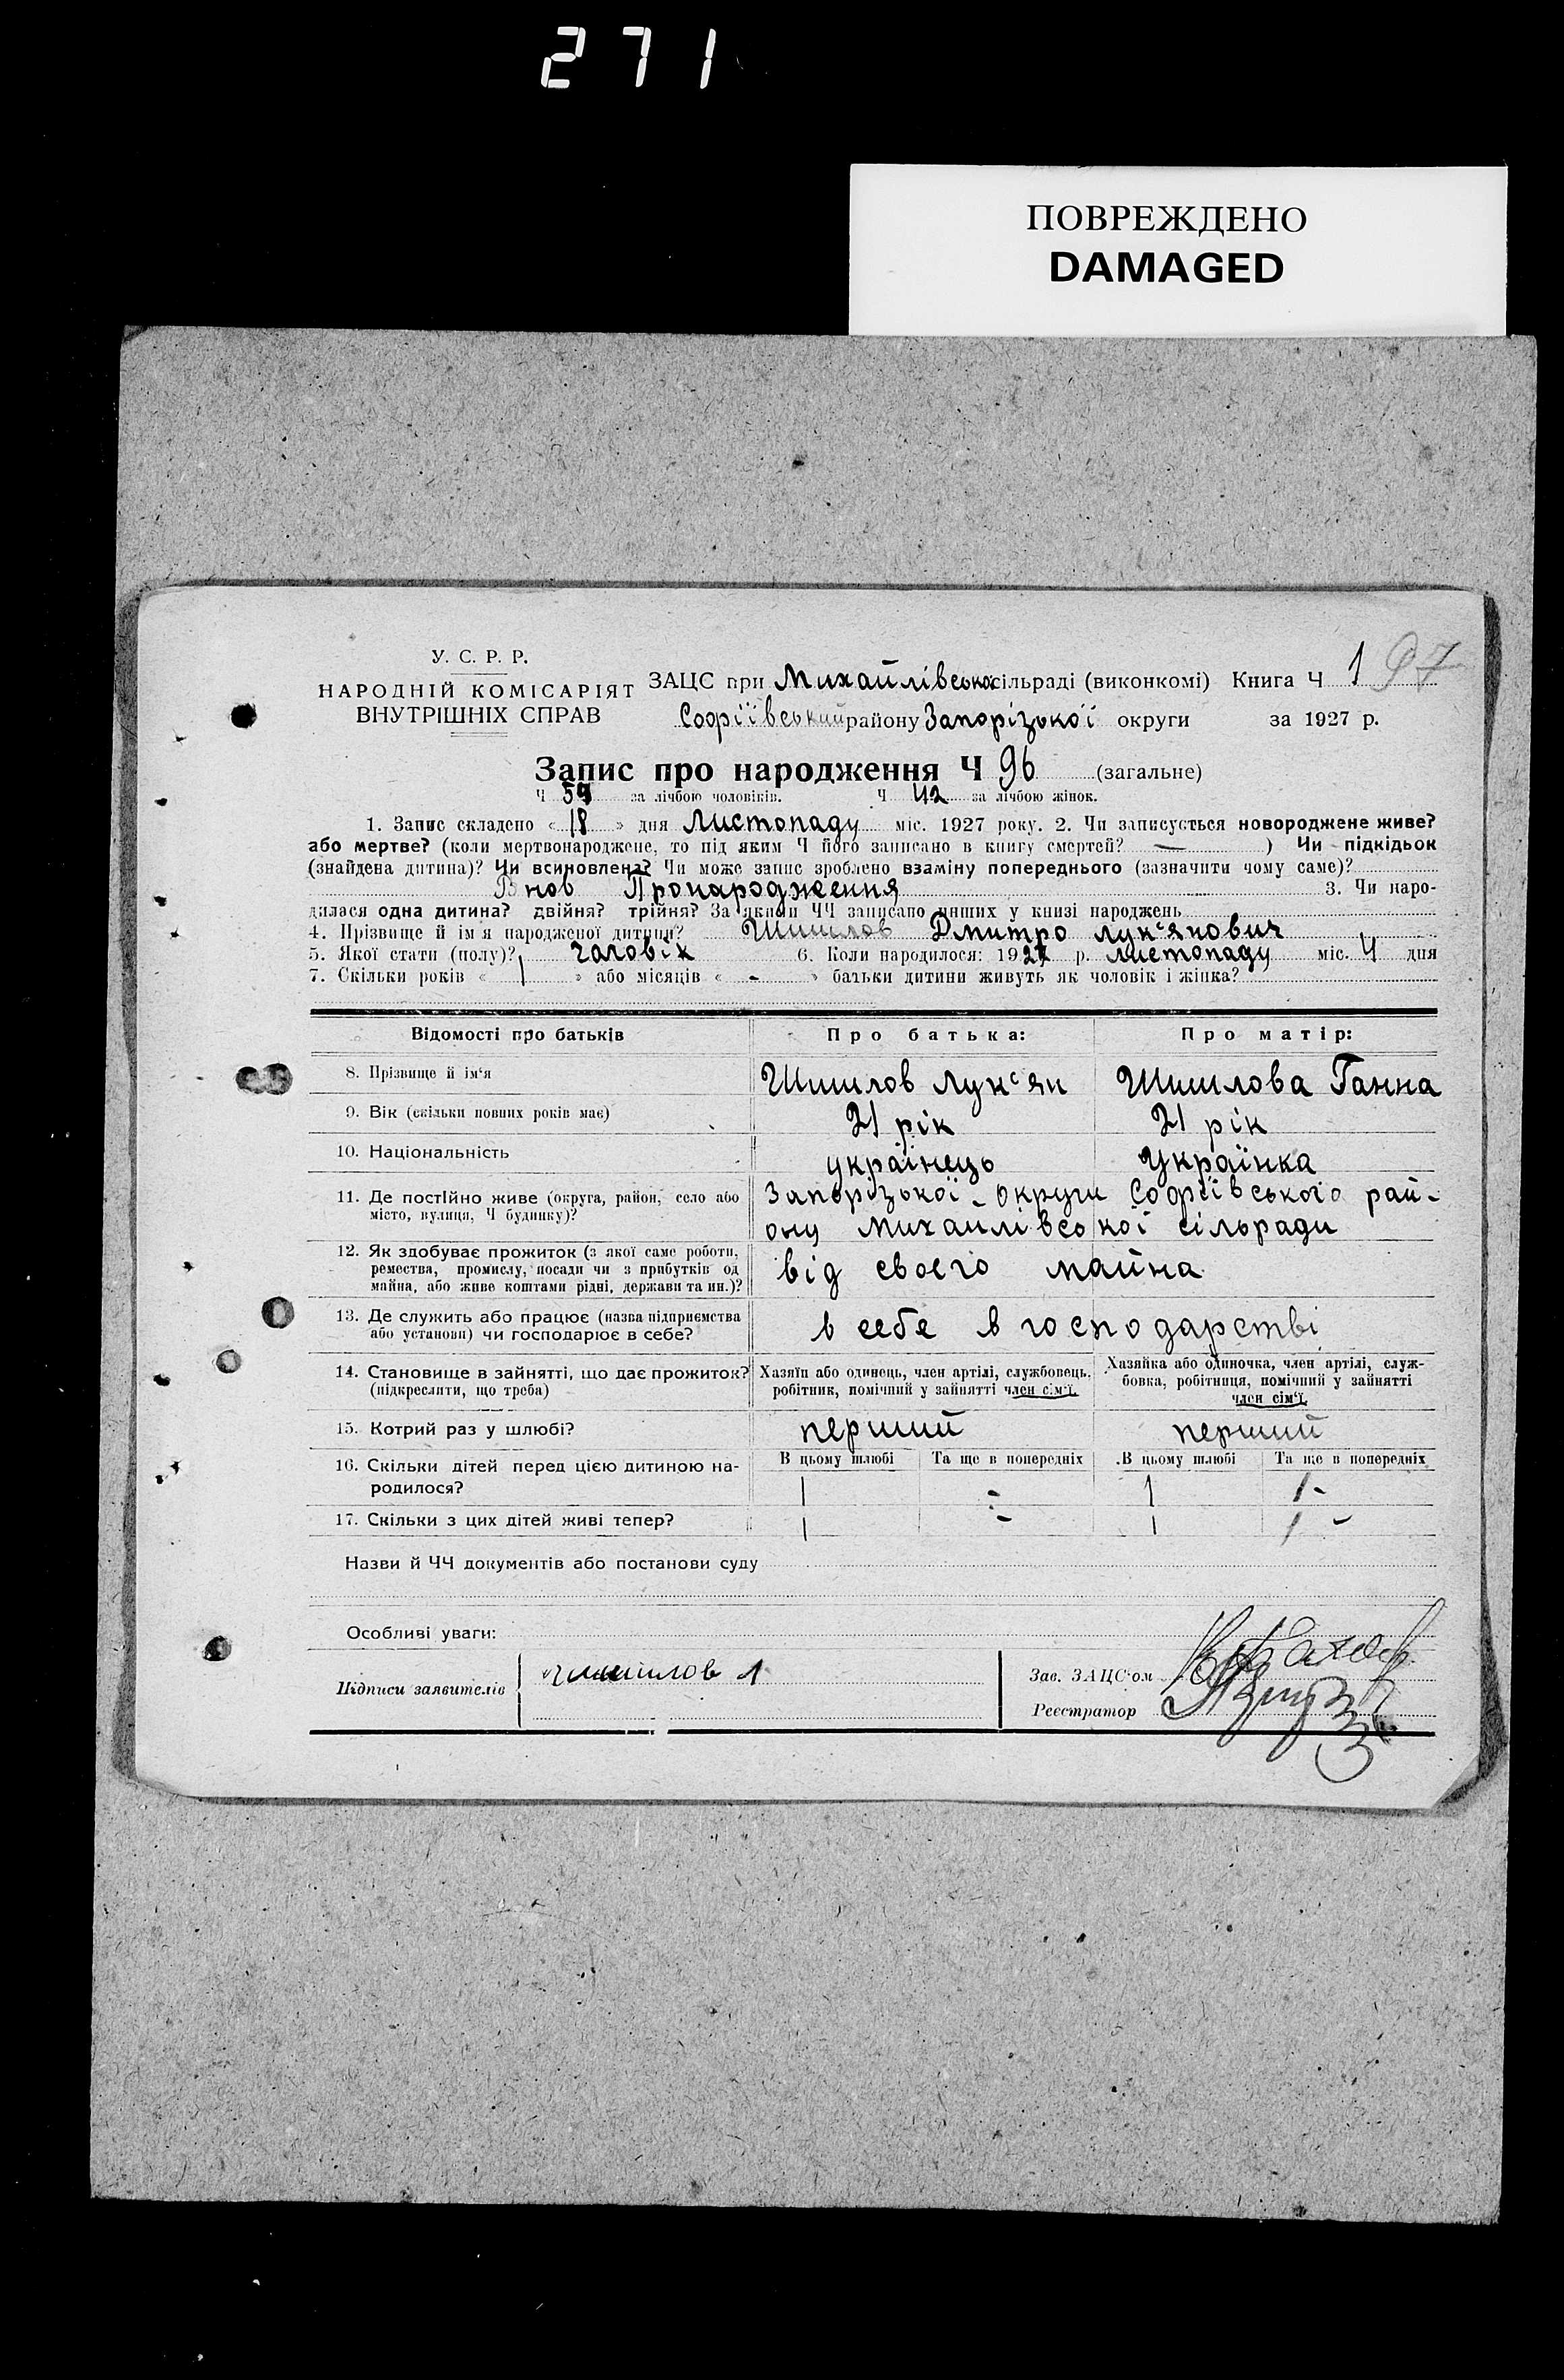 271
ПОВРЕЖДЕНО
DAMAGED
У. С. Р. Р.
НАРОДНІЙ КОМІСАРІЯТ
ВНУТРІШНІХ СПРАВ
ЗАЦС при Михайлівській сільраді (виконкомі) Книга Ч 1 97
Софіївський району Запорізької округи за 1927 р.
Запис про народження Ч 96 (загальне)
Ч 54 за лічбою чоловіків. Ч 42 за лічбою жінок.
1. Запис складено «18» дня Листопаду міс. 1927 року. 2. Чи записується новороджене живе?
або мертве? (коли мертвонароджене, то під яким Ч його записано в книгу смертей? — ) Чи підкідьок
(знайдена дитина)? Чи всиновлена? Чи може запис зроблено взаміну попереднього (зазначити чому саме)?
Внов Пронародження 3. Чи наро-
дилася одна дитина? двійня? трійня? За якими ЧЧ записано инших у книзі народжень
4. Прізвище й ім'я народженої дитини? Шишлов Дмитро Лук'янович
5. Якої стати (полу)? чаловік 6. Коли народилося: 1927 р. листопаду міс. 4 дня
7. Скільки років «1» або місяців «-» батьки дитини живуть як чоловік і жінка?
Відомості про батьків Про батька: Про матір:
8. Прізвище й ім'я Шишлов Лук'ян Шишлова Ганна
9. Вік (скільки повних років має) 21 рік 21 рік
10. Національність українець Українка
11. Де постійно живе (округа, район, село або місто, вулиця, Ч будинку)? Запорізької округи Софіївського рай-
ону Михайлівської сільради
12. Як здобуває прожиток (з якої саме роботи,
ремества, промислу, посади чи з прибутків од
майна, або живе коштами рідні, держави та ин.)? від своего майна
13. Де служить або працює (назва підприємства
або установи) чи господарює в себе? в себе в господарстві
14. Становище в зайнятті, що дає прожиток?
(підкреслити, що треба)
Хазяїн або одинець, член артілі, службовець,
робітник, помічний у зайнятті член сім'ї.
Хазяйка або одиночка, член артілі, служ-
бовка, робітниця, помічний у зайнятті
член сім'ї.
15. Котрий раз у шлюбі? перший перший
16. Скільки дітей перед цією дитиною на-
родилося?
В цьому шлюбі Та ще в попередніх В цьому шлюбі Та ще в попередніх
1 - 1 1-
17. Скільки з цих дітей живі тепер? 1 - 1 1 -
Назви й ЧЧ документів або постанови суду
Особливі уваги:
Підписи заявителів Шишлов Л
Зав. ЗАЦС'ом
Реєстратор